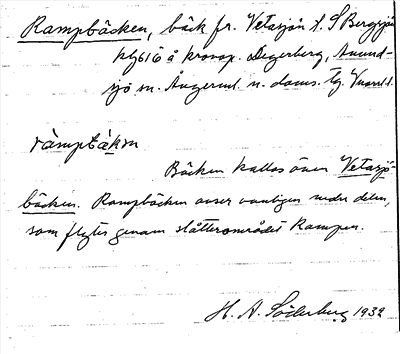 Rampbäcken, bäck fr. Vetasjön t. S Bergsjön
å kronop. Degerberg, Anund-
sjö sn. Ångerml. n. doms. tg. Vuorl.
ràmpbä̀kɛn
Bäcken kallas även Vetasjö-
bäcken. Rampbäcken avser vanligen nedre delen,
som flyter genom slåtterområdet Rampen.
H. A. Söderberg 1932